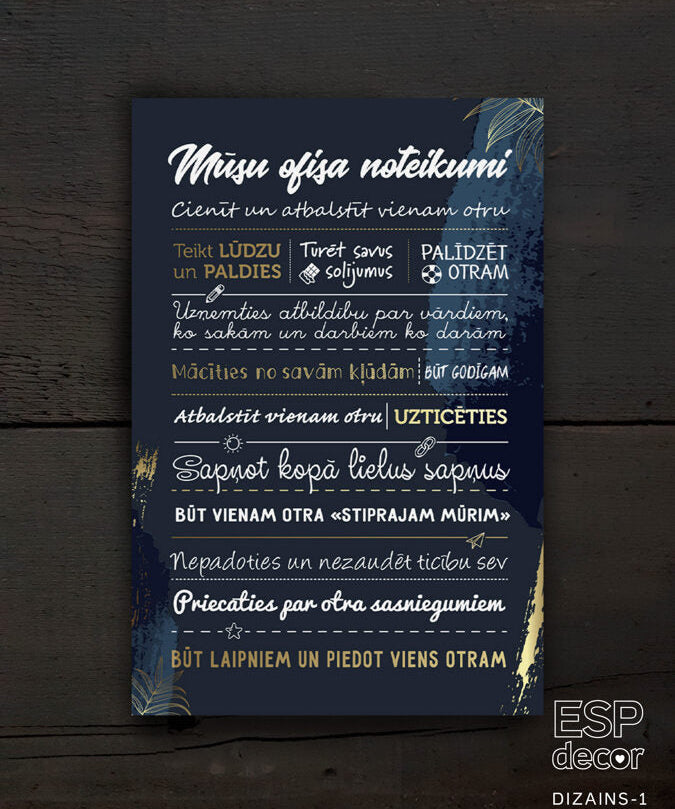 Mūsu ofisa noteikumi
Cienīt un atbalstīt vienam otru
Teikt LŪDZU
un PALDIES
Turēt savus
solījumus
PALĪDZĒT
OTRAM
Uzņemties atbildību par vārdiem,
ko sakām un darbiem ko darām
Mācīties no savām kļūdām
BŪT GODĪGAM
Atbalstīt vienam otru
UZTICĒTIES
Sapņot kopā lielus sapņus
BŪT VIENAM OTRA «STIPRAJAM MŪRIM»
Nepadoties un nezaudēt ticību sev
Priecāties par otra sasniegumiem
BŪT LAIPNIEM UN PIEDOT VIENS OTRAM
ESP
decor
DIZAINS-1